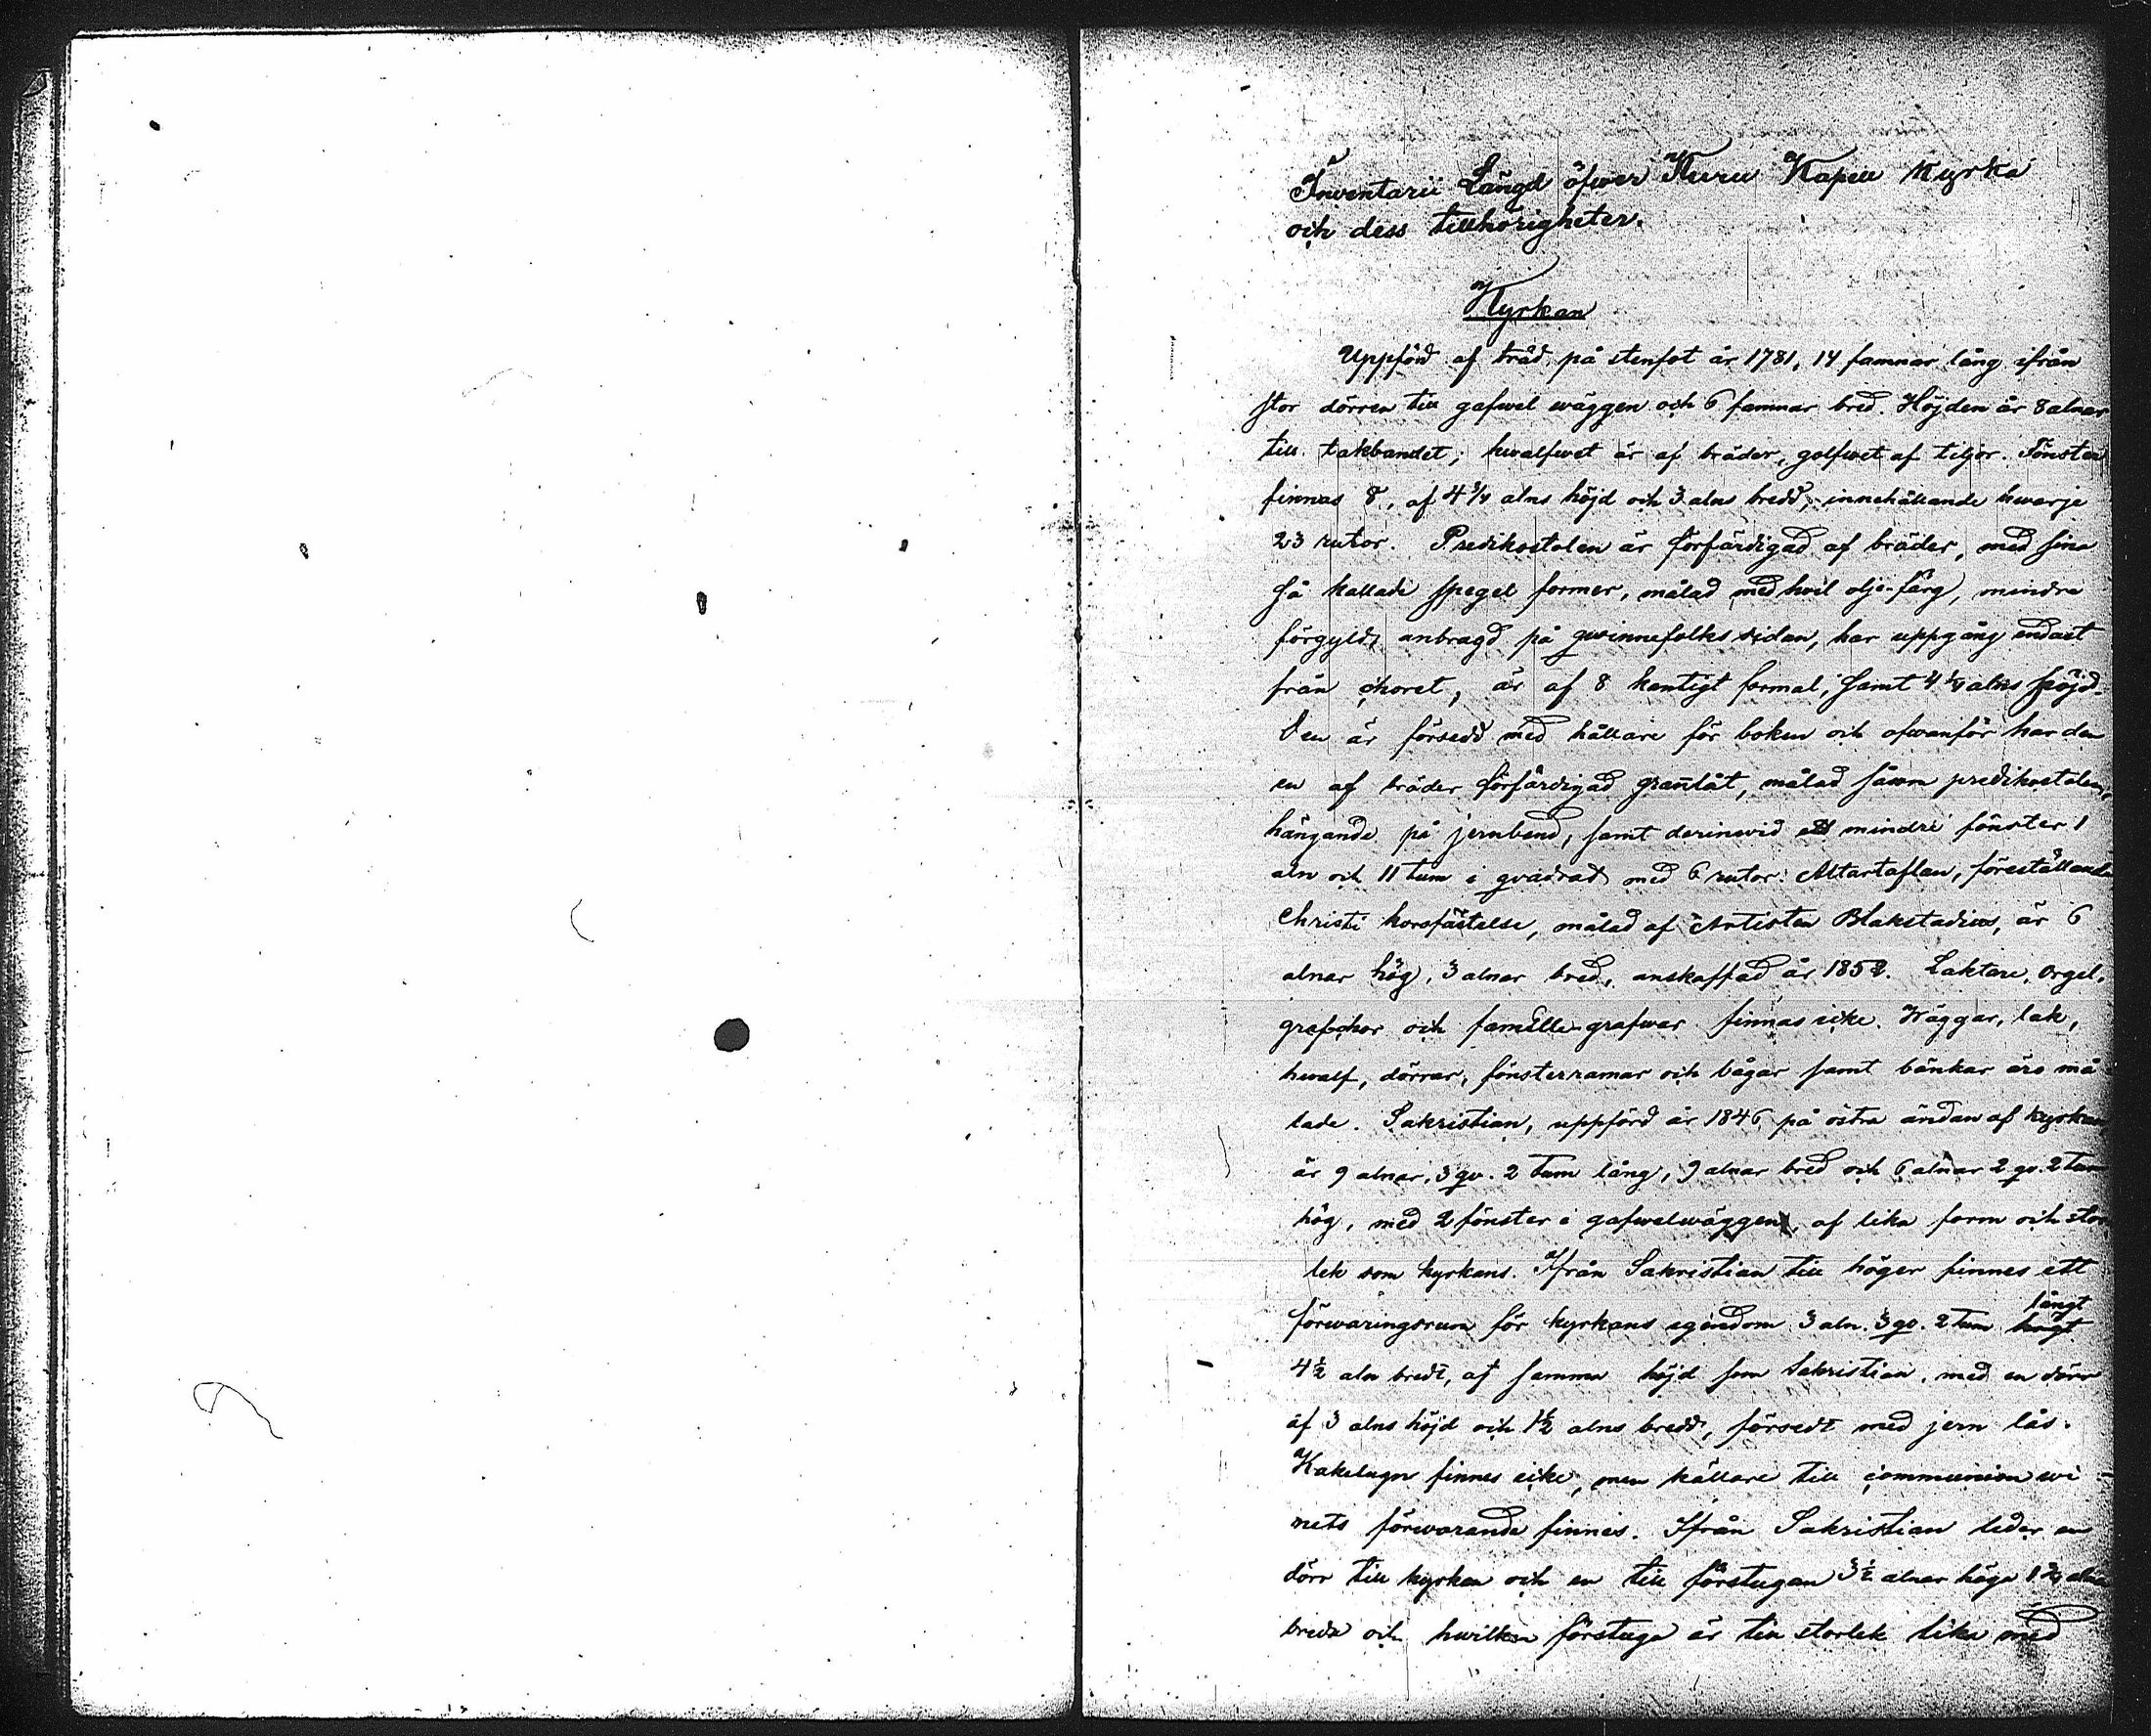 Inventarii Längd öfwer Kuru Kapell Kyrka
och dess tillhörigheter.
Kyrkan
Uppförd af träd på stenfot år 1781, 14 famnar lång ifrån
stor dörren till gafwel wäggen och 6 famnar bred. Höjden är 8 alnar
till takbandet; hwalfwet är af bräder, golfwet af tiljor. Fönster
finnas 8, af 4 3/4 alns höjd och 3 alns bredd, innehållande hwarje
23 rutor. Predikostolen är förfärdigad af bräder, med sina
så kallade spegel former, målad med hvit olje-färg, mindre
förgyld, anbragd på qwinnefolks sidan, har uppgång endast
från choret, är af 8 kantigt format, samt 4 1/4 alns höjd.
Den är försedd med hållare för boken och ofwanför har den
en af bräder förfärdigad grannlåt, målad såsom predikostolen,
hängande på jernband, samt derinwid ett mindre fönster 1
aln och 11 tum i qvadrat med 6 rutor. Altartaflan, föreställande
Christi korsfästelse, målad af Artisten Blakstadius, är 6
alnar hög, 3 alnar bred, anskaffad år 1852. Laktare, orgel,
grafchor och famille-grafwar finnas icke. Wäggar, tak,
hwalf, dörrar, fönsterramar och bågar samt bänkar äro må
lade. Sakristian, uppförd år 1846 på östra ändan af kyrkan,
är 9 alnar, 3 qv. 2 tum lång, 9 alnar bred och 6 alnar 2 qv. 2 tum
hög, med 2 fönster i gafwelwäggen, af lika form och stor
lek som kyrkans. Ifrån Sakristian till höger finnes ett
förwaringsrum för kyrkans egendom 3 aln. 3 qv. 2 tum högt långt
4 1/2 aln bredt, af samma höjd som Sakristian, med en dörr
af 3 alns höjd och 1 1/2 alns bredd, försedt med jern lås.
Kakelugn finnes icke, men källare till communion wi-
nets förwarande finnes. Ifrån Sakristian leder en
dörr till kyrkan och en till förstugan 3 1/2 alnar höga 1 3/4 alnar
breda och hwilken förstuga är till storlek lika med